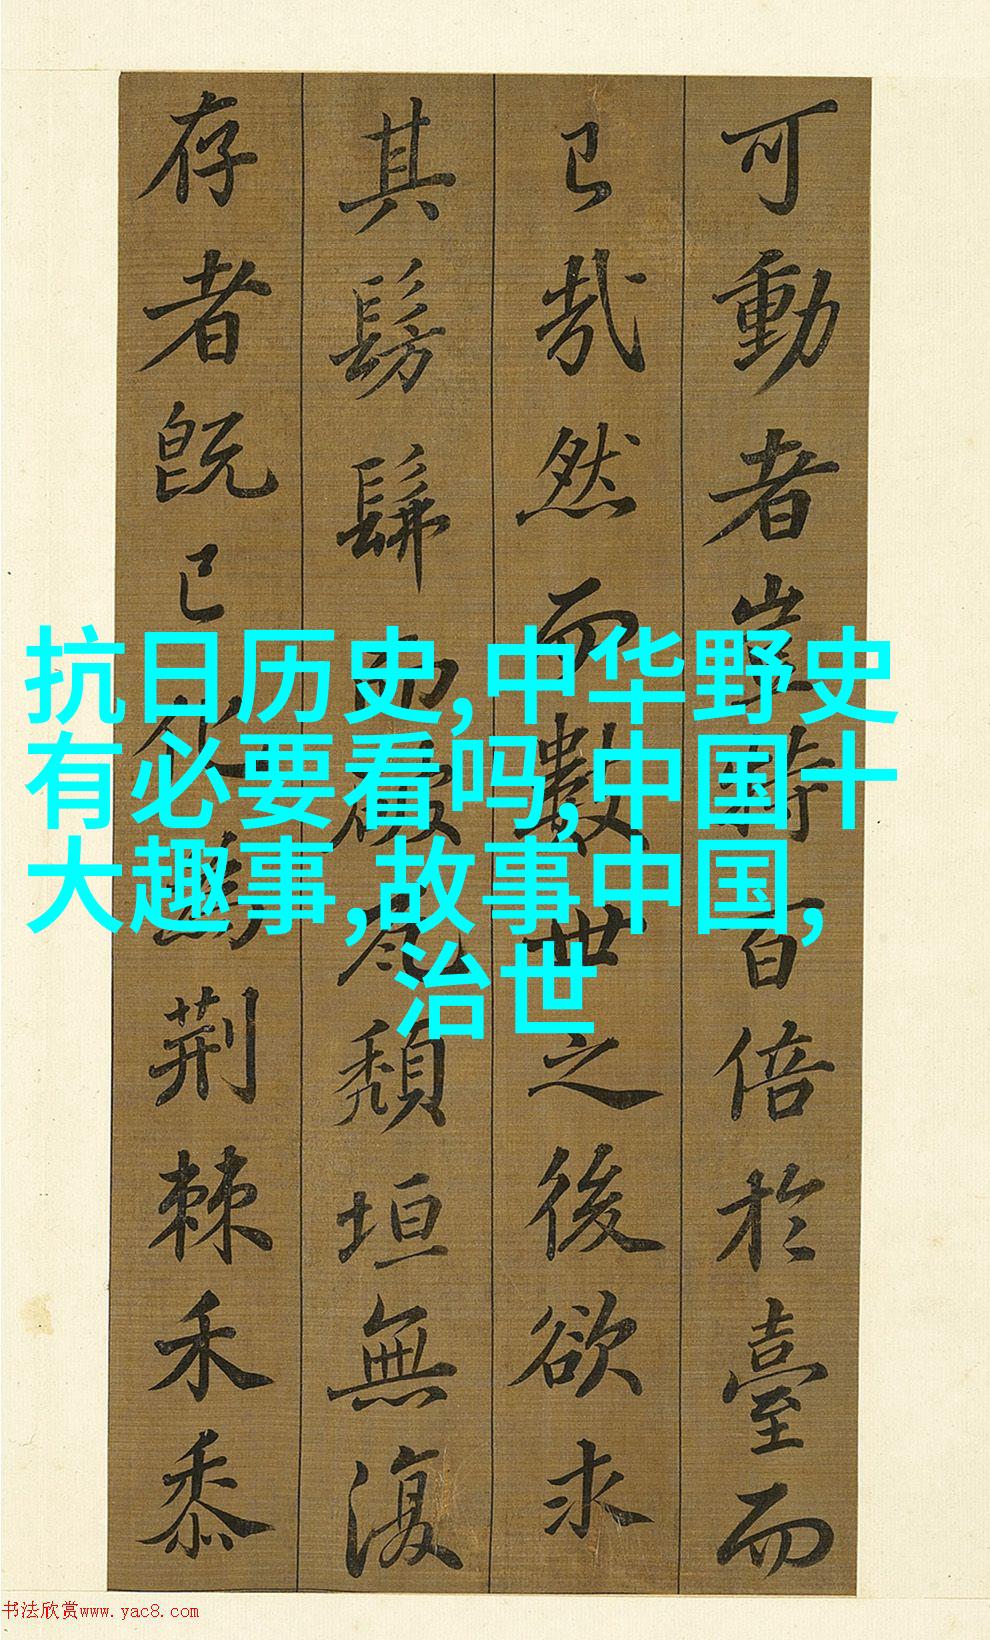 可動者豈特百倍於臺而
已哉然而數世之後欲求
其髣髴而破瓦頹垣無復
存者既已化為荊棘禾黍
抗日历史,中华野史
有必要看吗,中国十
大趣事,故事中国,
治世
书法欣赏www.yac8.com